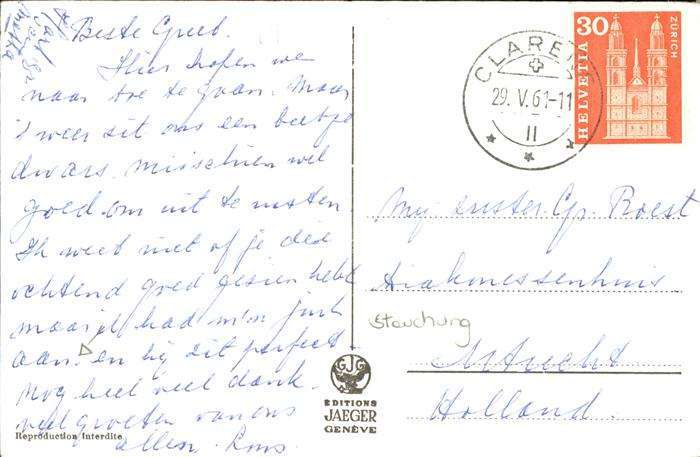 Beste Greet.
Hier hopen we
naar toe te gaan. Maar
't weer zit ons een beetje
dwars. misschien wel
goed om uit te rusten.
Ik weet niet of je deze
ochtend goed gezien hebt
maar ik had m'n jurk
aan. en hij zit perfect
Nog heel veel dank.
veel groeten van ons
allen.
Reproduction interdite
EDITIONS
JAEGER
GENÈVE
CLARENS
29. V. 61-11
II
30
HELVETIA
ZÜRICH
Mej. zuster Gr. Roest
Diakonessenhuis
Stauchung
Utrecht
Holland.